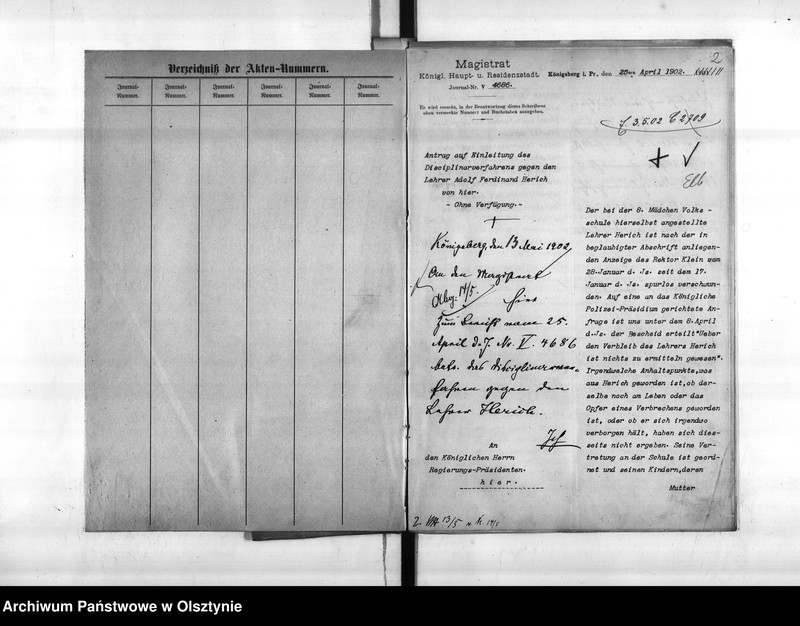 Verzeichniß der Akten-Nummern.
Journal-Nummer. Journal-Nummer. Journal-Nummer. Journal-Nummer. Journal-Nummer. Journal-Nummer.
2
Magistrat
Königl. Haupt- u. Residenzstadt.
Journal-Nr. V 4686.
Königsberg i. Pr., den 25ten April 1902.
Es wird ersucht, in der Beantwortung dieses Schreibens
oben vermerkte Nummer und Buchstaben anzugeben.
3.5.02 C 2709
Antrag auf Einleitung des
Disciplinarverfahrens gegen den
Lehrer Adolf Ferdinand Herich
von hier.
- Ohne Verfügung.-
Königsberg, den 13 Mai 1902
An den Magistrat
14/5.
hier
Zum Bericht vom 25.
April d. J. No. V. 4686
betr. das Disciplinarver=
fahren gegen den
Lehrer Herich.
An
den Königlichen Herrn
Regierungs-Präsidenten.
hier.
2. 13/5 14/5
Der bei der 8. Mädchen Volks -
schule hierselbst angestellte
Lehrer Herich ist nach der in
beglaubigter Abschrift anliegen-
den Anzeige des Rektor Klein vom
28.Januar d. Js. seit dem 17.
Januar d. Js. spurlos verschwun-
den. Auf eine an das Königliche
Polizei-Präsidium gerichtete An-
frage ist uns unter dem 8.April
d.Js. der Bescheid erteilt"Ueber
den Verbleib des Lehrers Herich
ist nichts zu ermitteln gewesen".
Irgendwelche Anhaltspunkte,was
aus Herich geworden ist,ob der-
selbe noch am Leben oder das
Opfer eines Verbrechens geworden
ist, oder ob er sich irgendwo
verborgen hält, haben sich dies-
seits nicht ergeben. Seine Ver-
tretung an der Schule ist geord-
net und seinen Kindern,deren
Mutter
Archiwum Państwowe w Olsztynie